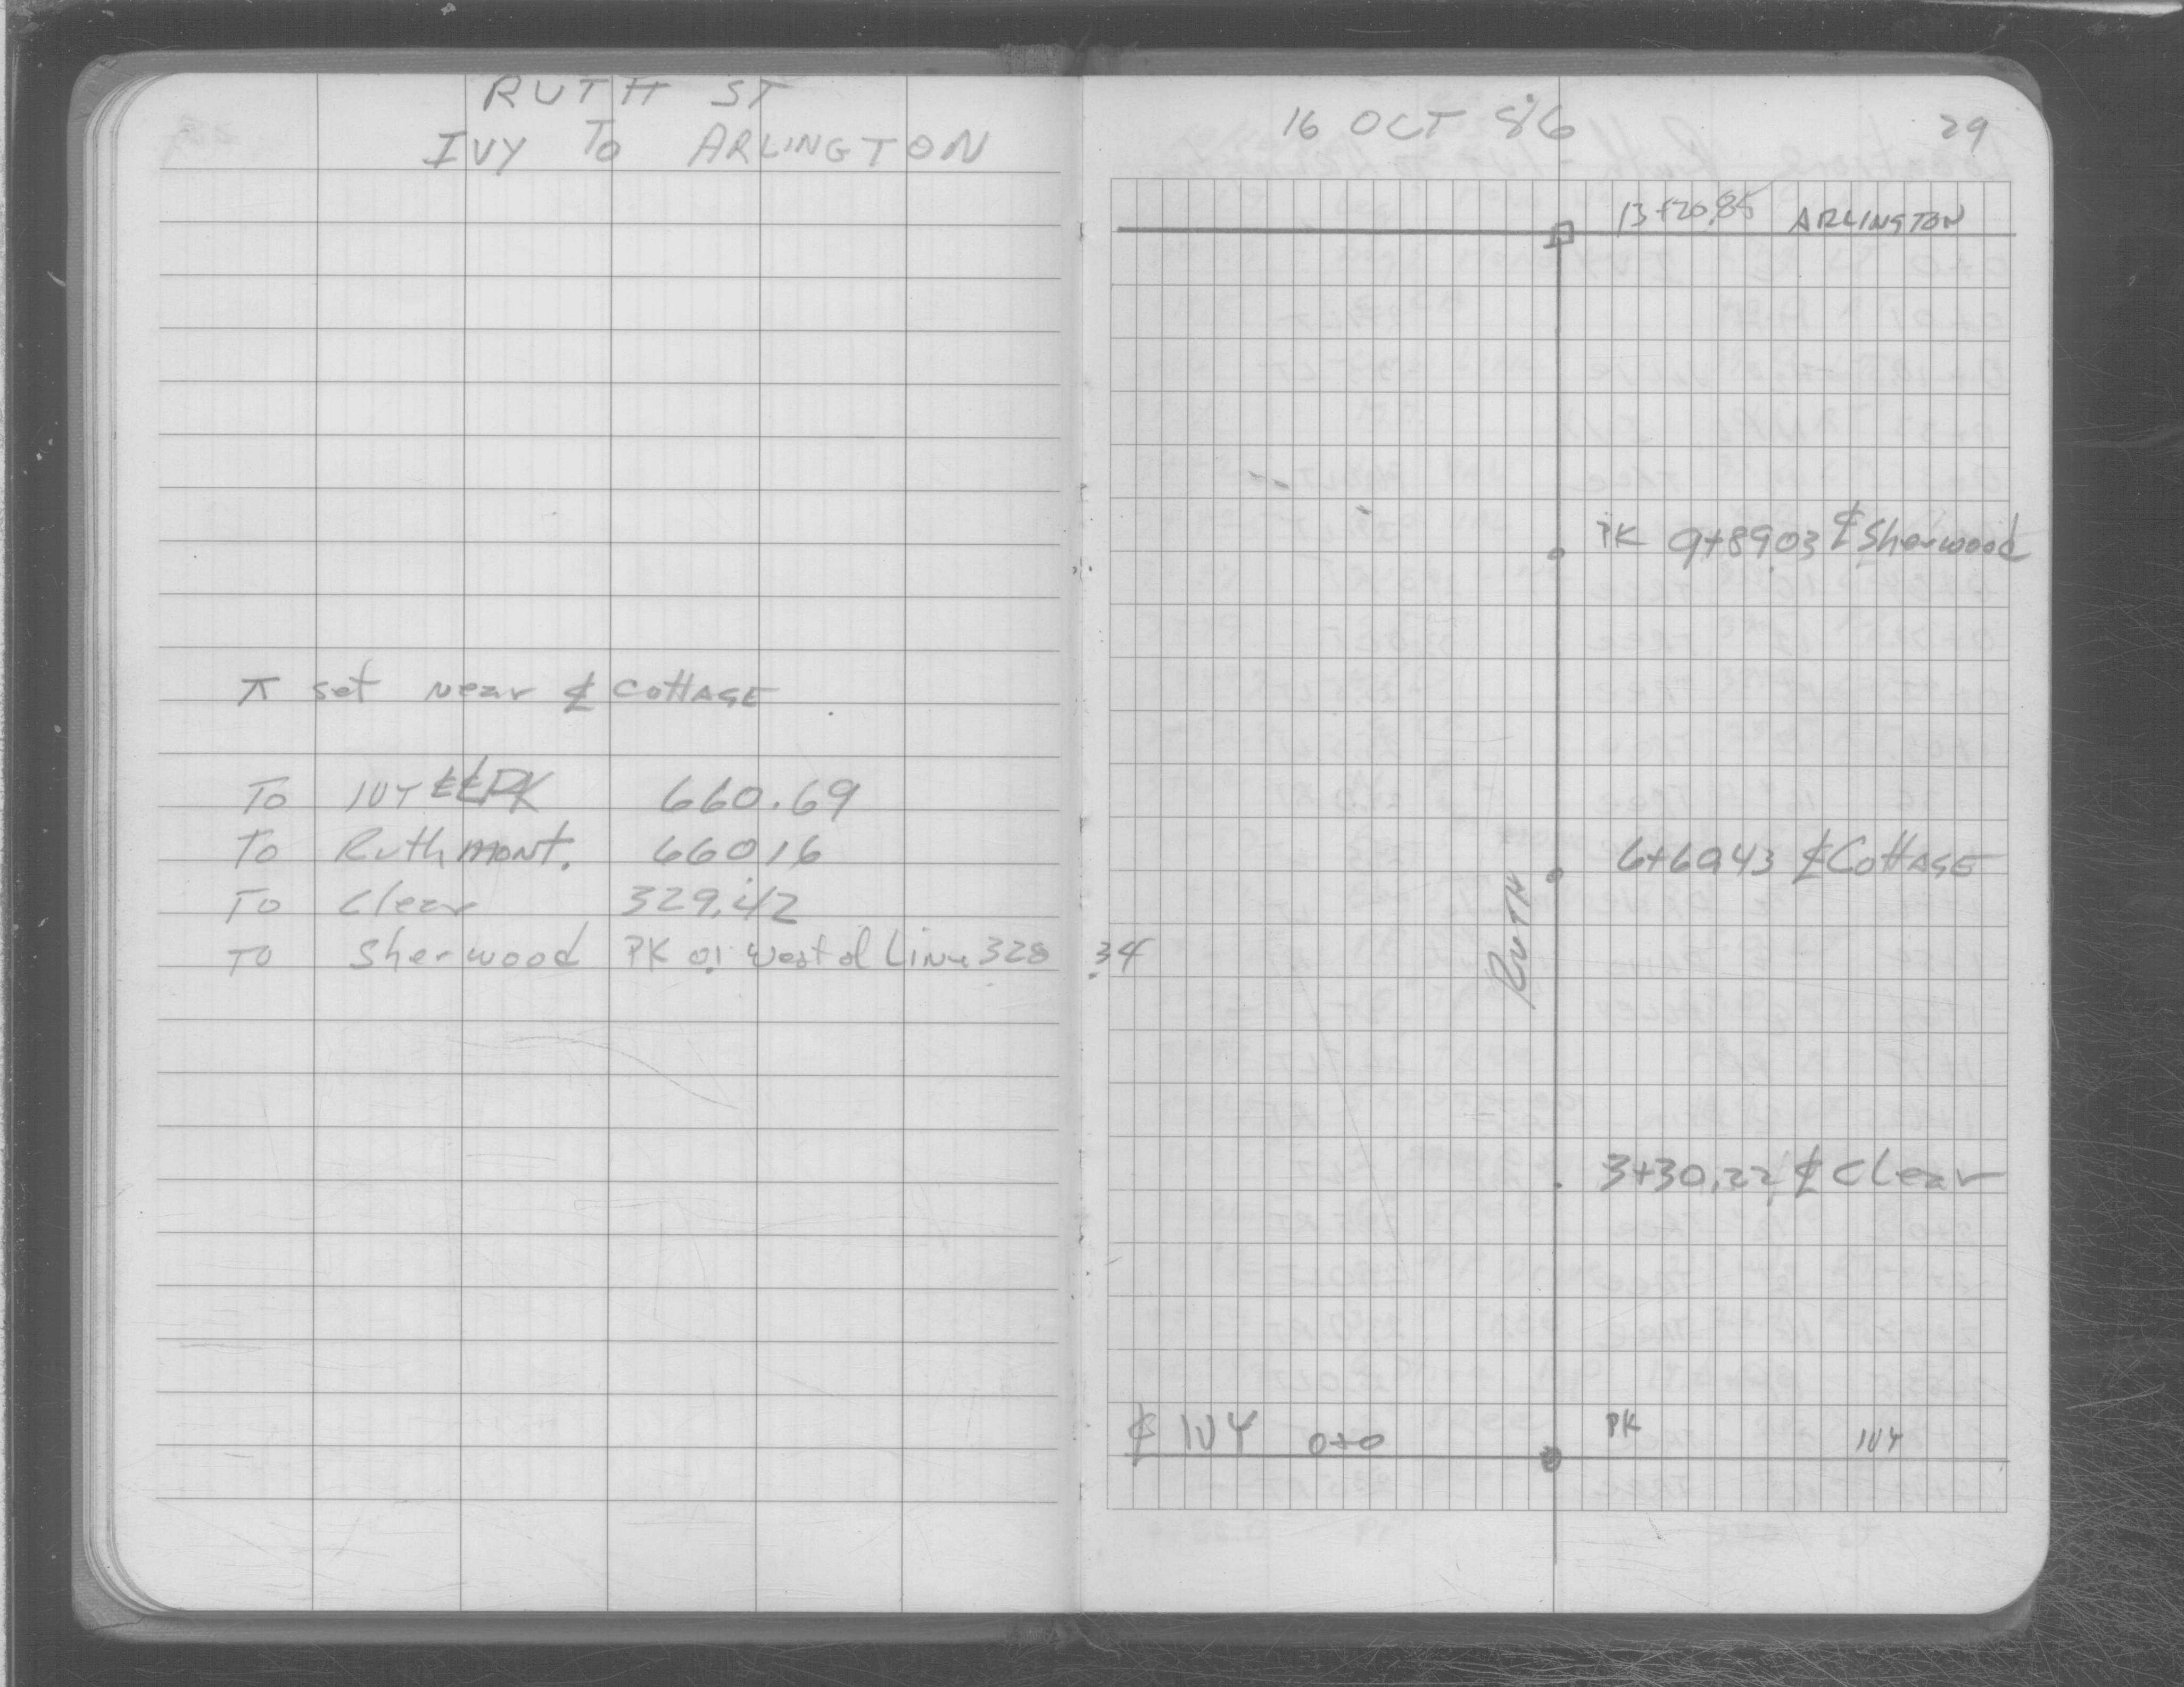 RUTH ST
IVY TO ARLINGTON
π set near ℄ COTTAGE
To IVY ℄℄PK 660.69
To Ruth MONT. 660.16
To Clear 329.42
TO Sherwood PK 0.1 West of Line 328.34
16 OCT 86 29
13+20.85 ARLINGTON
PK 9+89.03 ℄ Sherwood
6+60.43 ℄ COTTAGE
RUTH
3+30.22 ℄ Clear
℄ IVY 0+0 PK IVY